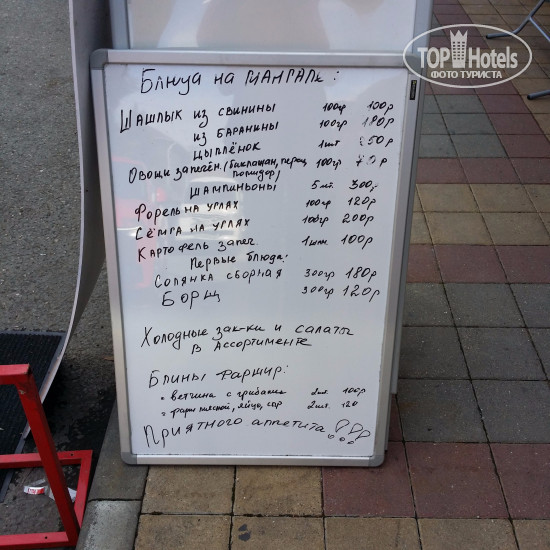 TOP Hotels
ФОТО ТУРИСТА
Блюда на МАНГАЛе:
Шашлык из свинины 100гр 100р
из баранины 100гр
цыплёнок 1шт
Овощи запечён. (баклашан, перец, 100гр
помидор)
Шампиньоны 5 шт. 300р
Форель на углях 100гр 120р
Сёмга на углях 100гр 200р
Картофель запеч. 1шт 100р
Первые блюда:
Солянка сборная 300гр 180р
Борщ 300гр 120р
Холодные зак-ки и салаты
в Ассортименте
Блины фаршир:
• ветчина с грибами 2шт. 100р
• фарш мясной, яйцо, сыр 2шт. 120
Приятного аппетита!!!